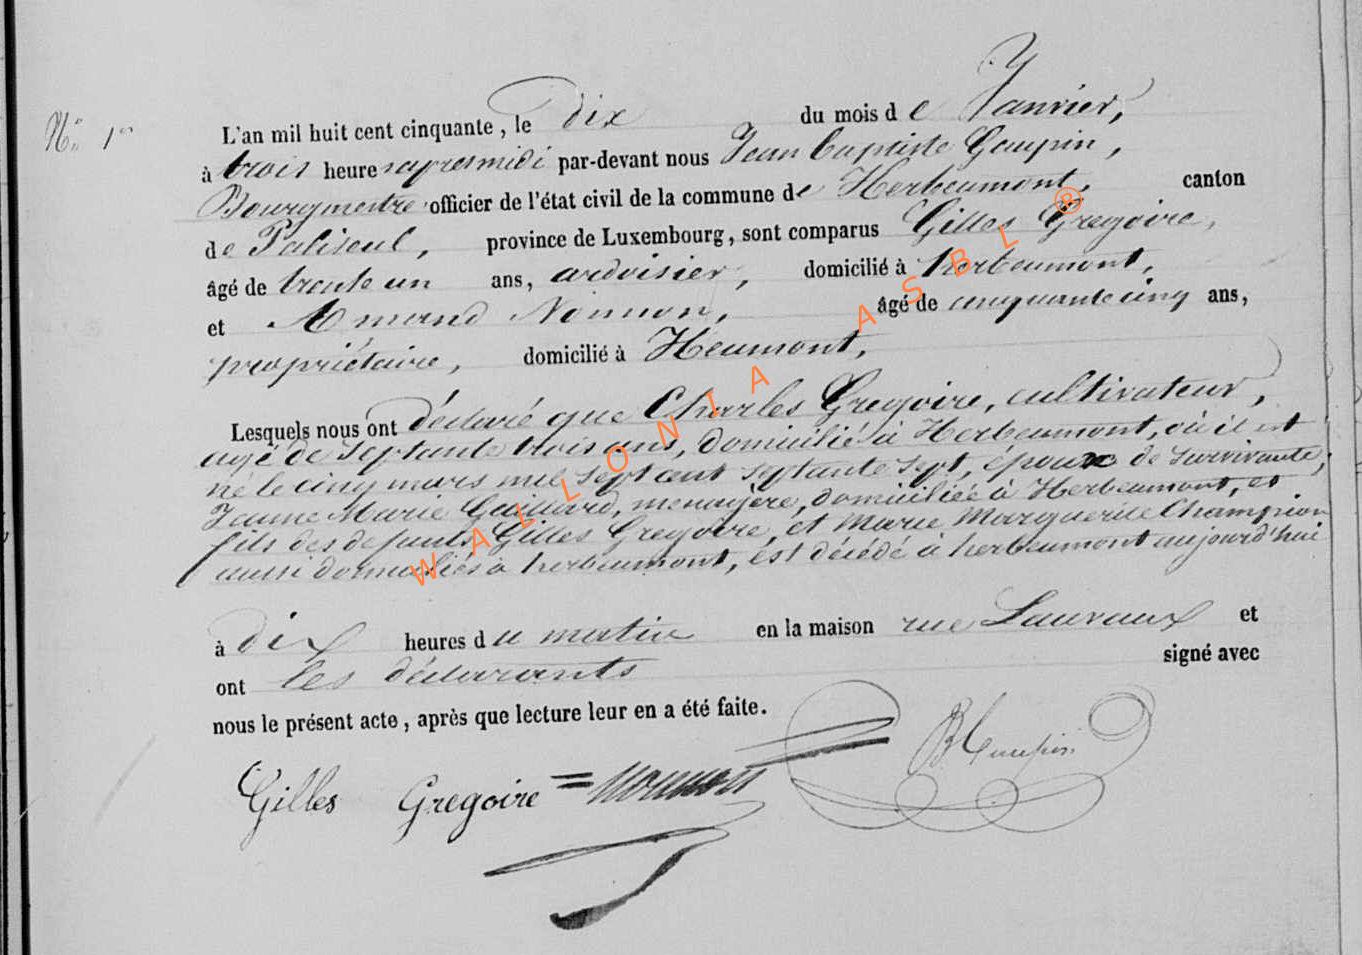 N° 1er
L'an mil huit cent cinquante, le dix du mois de Janvier,
à trois heures apresmidi par-devant nous Jean Baptiste Goupin,
Bourgmestre officier de l'état civil de la commune de Herbeumont, canton
de Paliseul, province de Luxembourg, sont comparus Gilles Gregoire,
âgé de trente un ans, ardoisier, domicilié à herbeumont,
et Amand Nonnon, âgé de cinquante cinq ans,
propriétaire, domicilié à Heumont,
Lesquels nous ont déclaré que Charles Gregoire, cultivateur,
agé de Septante trois ans, domicilié à Herbeumont, où il est
né le cinq mars mil sept cent septante sept, époux de survivante,
Jeanne Marie Gaillard, menagère, domiciliée à Herbeumont, et
fils des defunts Gilles Gregoire, et Marie Marguerite Champion
aussi domiciliés à herbeumont, est décédé à herbeumont aujourd'hui
à dix heures du matin en la maison rue Lauvaux et
ont les déclarants signé avec
nous le présent acte, après que lecture leur en a été faite.
Gilles Gregoire Nonnon
WALLONIA ASBL ®